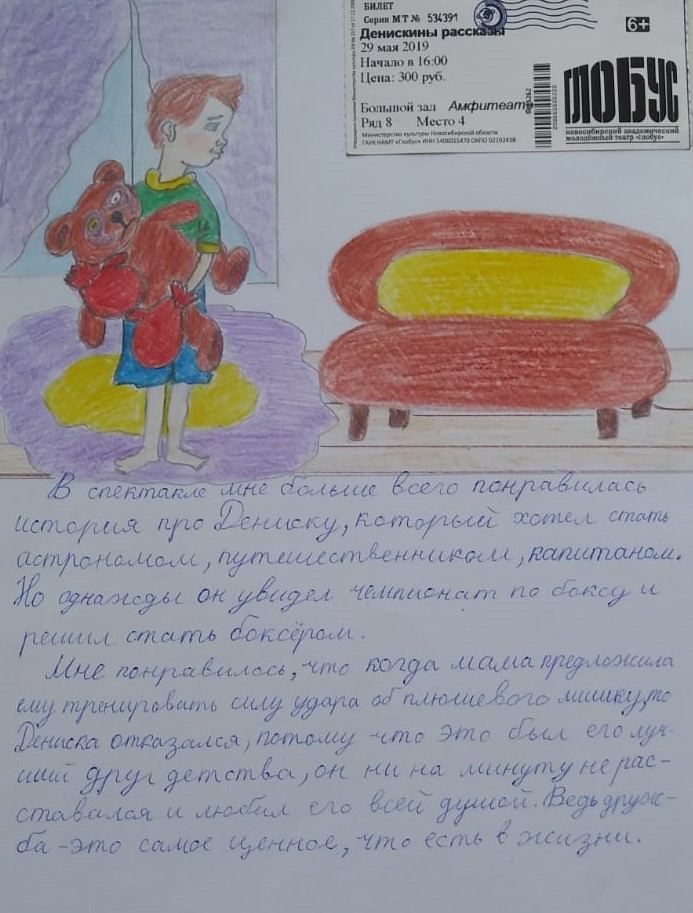 БИЛЕТ
Серия МТ № 534391
Денискины рассказы
29 мая 2019
Начало в 16:00
Цена: 300 руб.
Большой зал Амфитеатр
Ряд 8 Место 4
Министерство культуры Новосибирской области
ГАУК НАМТ «Глобус» ИНН 5406015470 ОКПО 02192438
6+
ГЛОБУС
новосибирский академический
молодёжный театр «глобус»
В спектакле мне больше всего понравилась
история про Дениску, который хотел стать
астрономом, путешественником, капитаном.
Но однажды он увидел чемпионат по боксу и
решил стать боксёром.
Мне понравилось, что когда мама предложила
ему тренировать силу удара об плюшевого мишку, то
Дениска отказался, потому что это был его луч-
ший друг детства, он ни на минуту не рас-
ставался и любил его всей душой. Ведь друж-
ба - это самое ценное, что есть в жизни.